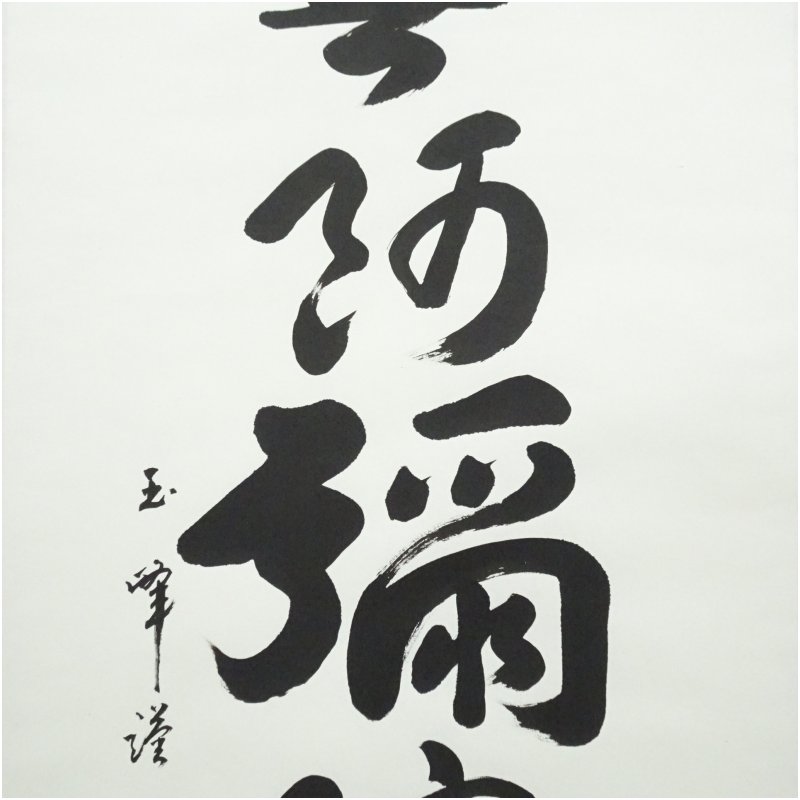 阿彌
玉峰謹